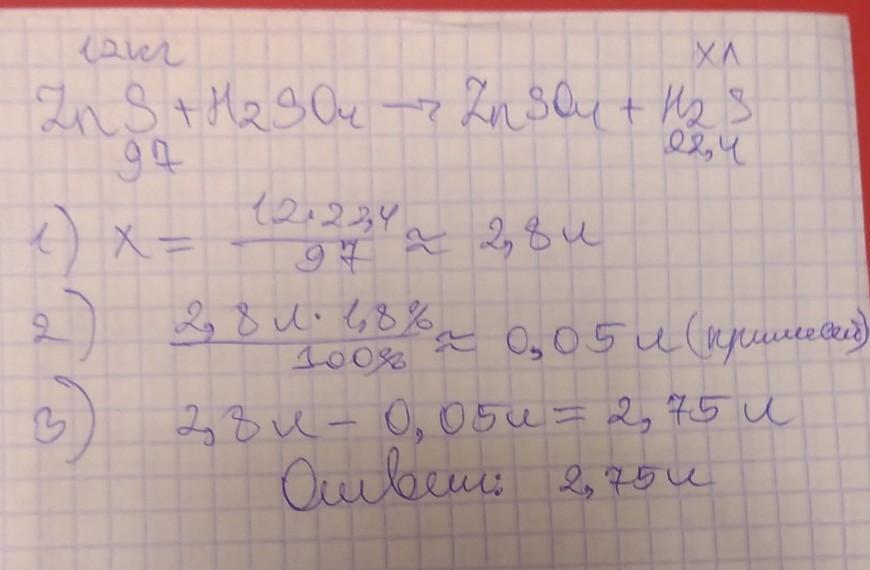 12кг хл
ZnS + H2SO4 → ZnSO4 + H2S
97 22,4
1) x = 12·22,4 / 97 ≈ 2,8 л
2) 2,8 л · 1,8% / 100% ≈ 0,05 л (примесей)
3) 2,8 л - 0,05 л = 2,75 л
Ответ: 2,75 л